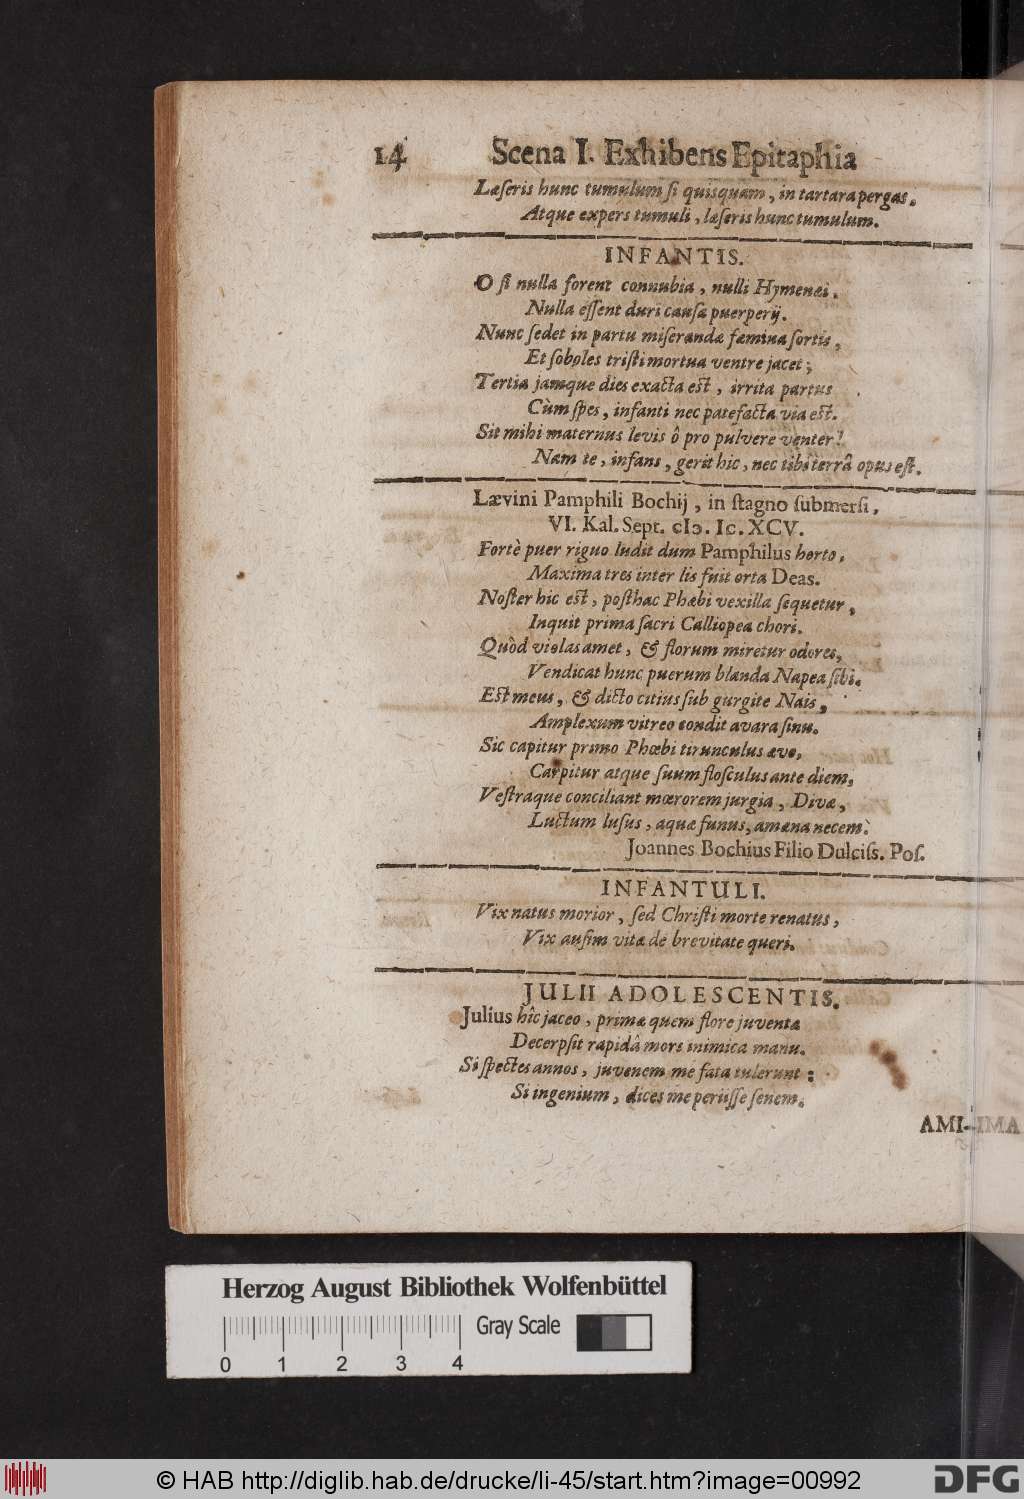 14 Scena I. Exhibens Epitaphia
Læſeris hunc tumulum ſi quisquam, in tartara pergas.
Atque expers tumuli, læſeris hunc tumulum.
INFANTIS.
O ſi nulla forent connubia, nulli Hymenæi.
Nulla eſſent duri cauſa puerperij.
Nunc ſedet in partu miſerandæ fæmina ſortis,
Et ſoboles triſti mortua ventre jacet;
Tertia jamque dies exacta eſt, irrita partus
Cùm ſpes, infanti nec patefacta via eſt.
Sit mihi maternus levis ô pro pulvere venter!
Nam te, infans, gerit hic, nec tibi terrâ opus eſt.
Lævini Pamphili Bochij, in ſtagno ſubmerſi,
VI. Kal. Sept. cIɔ. Ic. XCV.
Fortè puer riguo ludit dum Pamphilus horto,
Maxima tres inter lis fuit orta Deas.
Noſter hic eſt, poſthac Phæbi vexilla ſequetur,
Inquit prima ſacri Calliopea chori.
Quòd violas amet, & florum miretur odores,
Vendicat hunc puerum blanda Napea ſibi.
Eſt meus, & dicto citius ſub gurgite Nais,
Amplexum vitreo condit avara ſinu.
Sic capitur primo Phœbi tirunculus ævo,
Carpitur atque ſuum floſculus ante diem,
Veſtraque conciliant mœrorem jurgia, Divæ,
Luctum luſus, aquæ funus, amæna necem.
Joannes Bochius Filio Dulciſs. Poſ.
INFANTULI.
Vix natus morior, ſed Chriſti morte renatus,
Vix auſim vitæ de brevitate queri.
JULII ADOLESCENTIS.
Julius hîc jaceo, primæ quem flore juventæ
Decerpſit rapidâ mors inimica manu.
Si ſpectes annos, juvenem me fata tulerunt:
Si ingenium, dices me periiſſe ſenem.
AMI-
Herzog August Bibliothek Wolfenbüttel
Gray Scale
0 1 2 3 4
© HAB http://diglib.hab.de/drucke/li-45/start.htm?image=00992
DFG